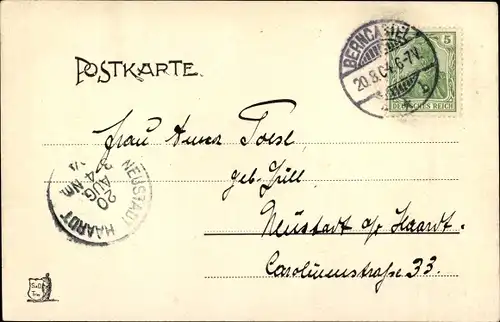 POSTKARTE.
BERNCASTEL
20.8.04. 6-7N.
b
5
DEUTSCHES REICH
Frau Anna
geb. Zill
Neustadt a/ Haardt.
Carolinenstraße 33.
NEUSTADT HAARDT
20 AUG
3-4 Nm.